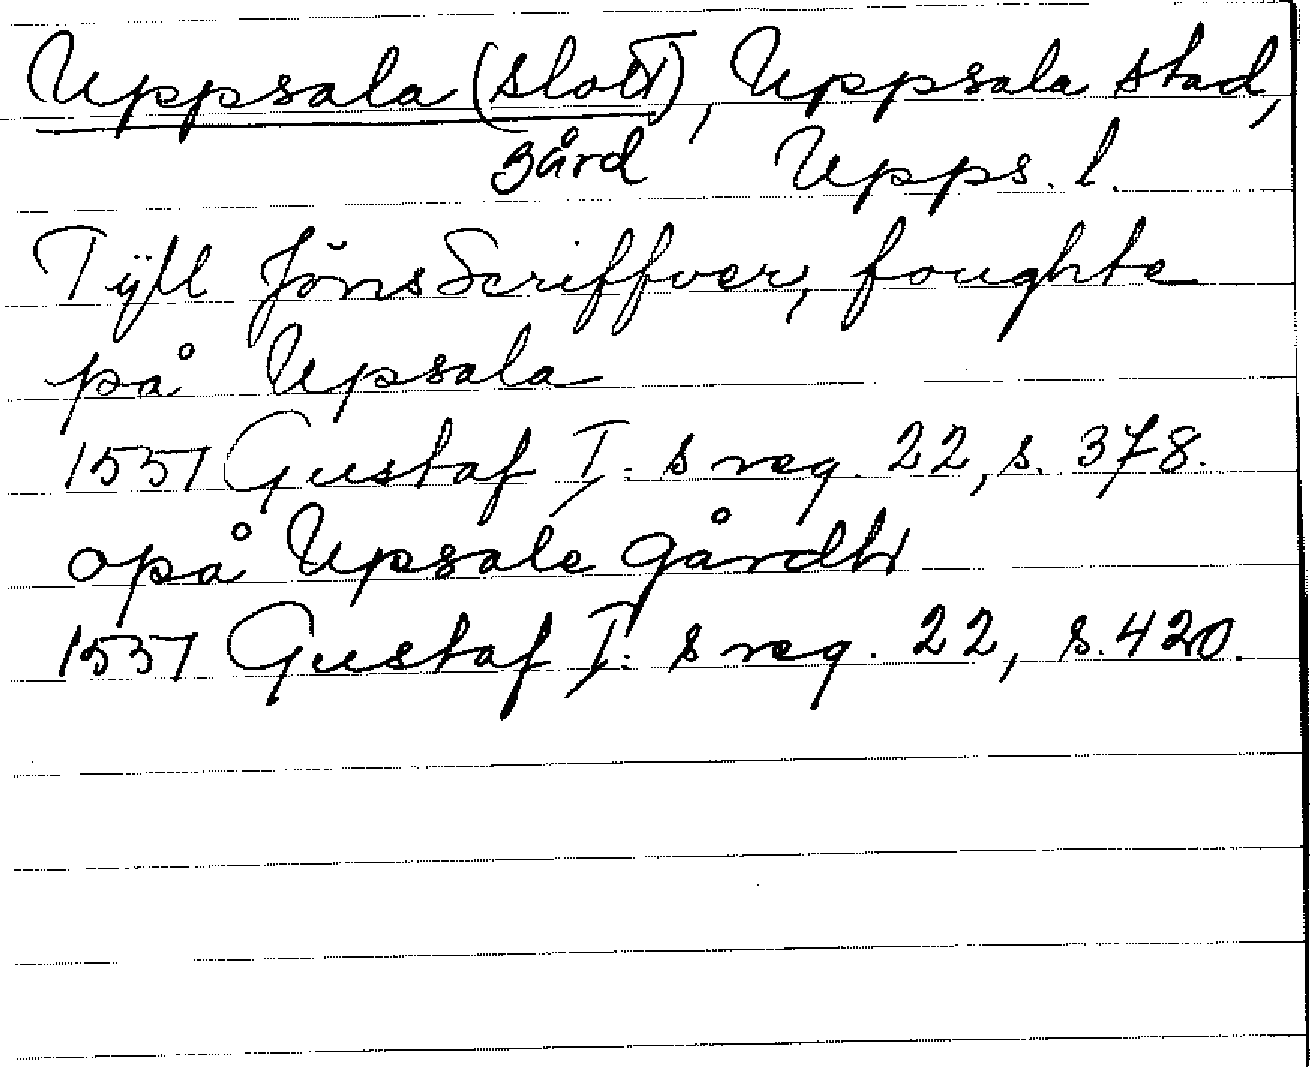 Uppsala (slott), Uppsala stad,
gård Upps. l.
Tÿll Jöns Scriffver, foughte
på Upsala
1551 Gustaf I:s reg. 22, s. 378.
opå Upsale gårdh
1551 Gustaf I:s reg. 22, s. 420.